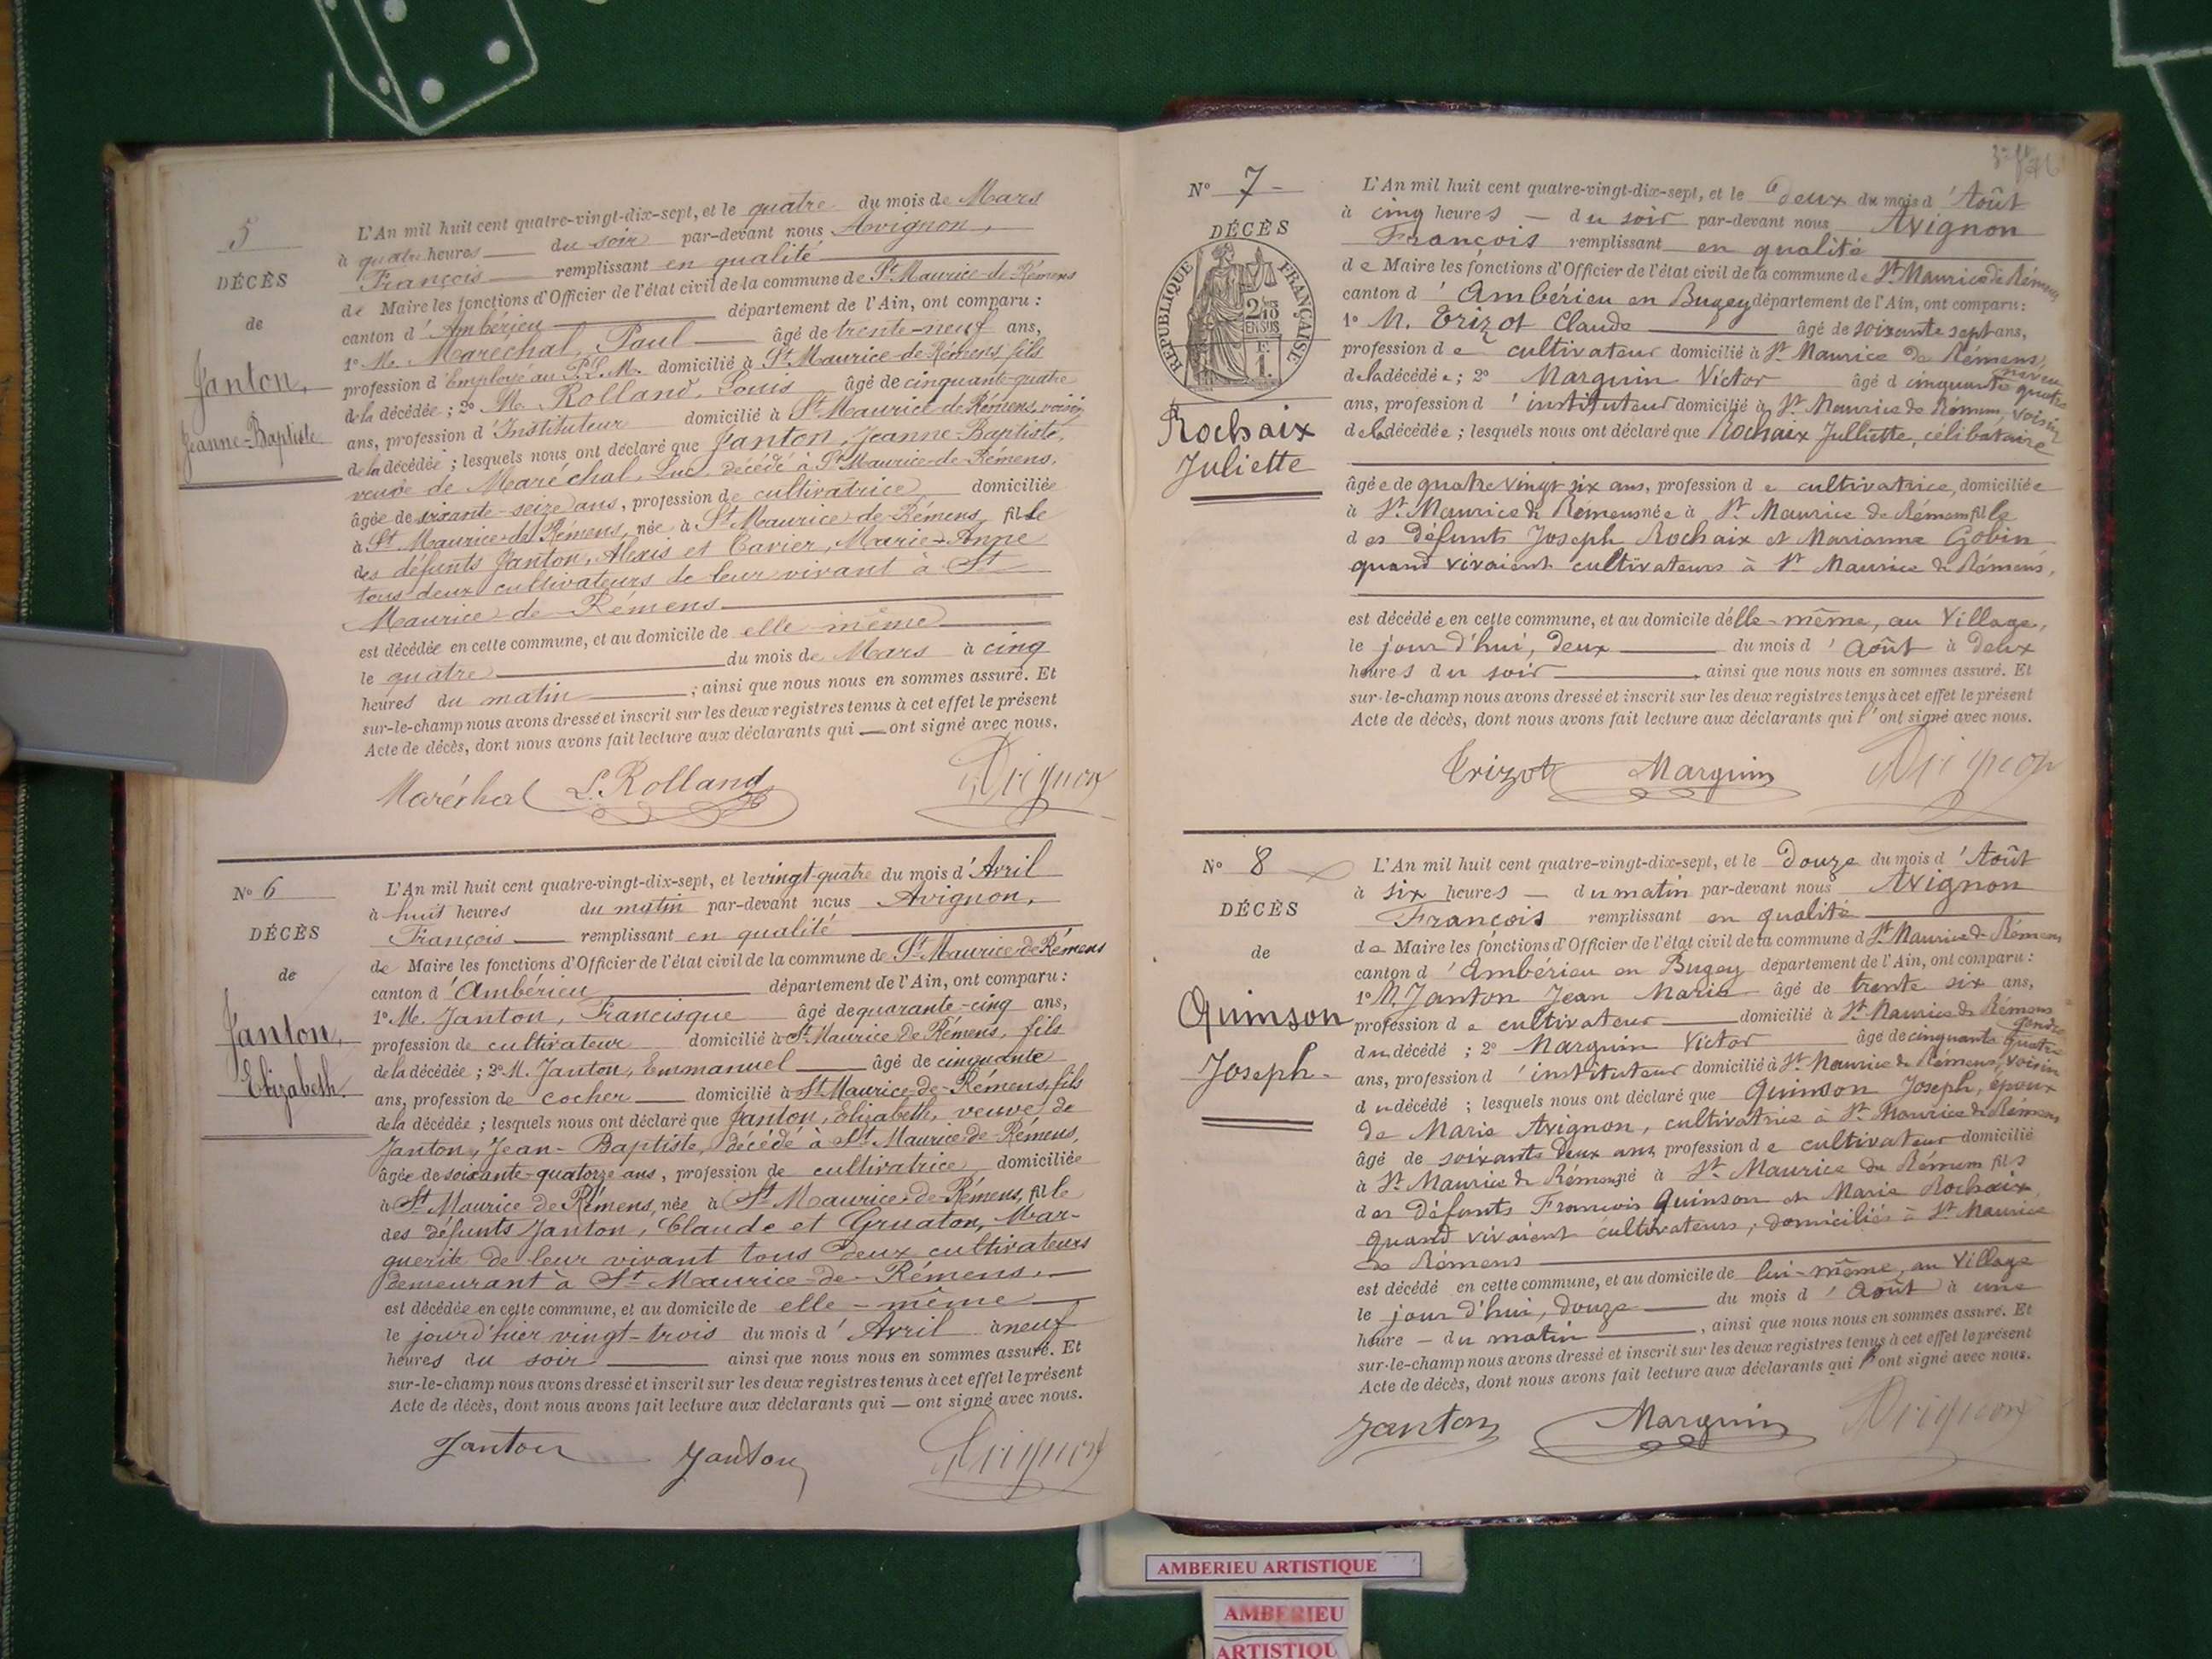 5
DÉCÈS
de
Janton,
Jeanne-Baptiste
L'An mil huit cent quatre-vingt-dix-sept, et le quatre du mois de Mars
à quatre heures du soir par-devant nous Avignon,
François remplissant en qualité
de Maire les fonctions d'Officier de l'état civil de la commune de St Maurice-de-Rémens
canton d'Ambérieu département de l'Ain, ont comparu :
1° M. Maréchal, Paul âgé de trente-neuf ans,
profession d'Employé au P.L.M. domicilié à St Maurice-de-Rémens, fils
de la décédée ; 2° M. Rolland, Louis âgé de cinquante-quatre
ans, profession d'Instituteur domicilié à St Maurice de Rémens, voisin
de la décédée ; lesquels nous ont déclaré que Janton, Jeanne-Baptiste,
veuve de Maréchal, Luc, décédé à St Maurice-de-Rémens,
âgée de soixante-seize ans, profession de cultivatrice domiciliée
à St Maurice-de-Rémens, née à St Maurice-de-Rémens, fille
des défunts Janton, Alexis et Cavier, Marie-Anne
tous deux cultivateurs de leur vivant à St
Maurice de Rémens
est décédée en cette commune, et au domicile de elle même
le quatre du mois de Mars à cinq
heures du matin ; ainsi que nous nous en sommes assuré. Et
sur-le-champ nous avons dressé et inscrit sur les deux registres tenus à cet effet le présent
Acte de décès, dont nous avons fait lecture aux déclarants qui — ont signé avec nous.
Maréchal L. Rolland Avignon
N° 6
DÉCÈS
de
Janton,
Elizabeth.
L'An mil huit cent quatre-vingt-dix-sept, et le vingt-quatre du mois d'Avril
à huit heures du matin par-devant nous Avignon,
François remplissant en qualité
de Maire les fonctions d'Officier de l'état civil de la commune de St Maurice de Rémens
canton d'Ambérieu département de l'Ain, ont comparu :
1° M. Janton, Francisque âgé de quarante-cinq ans,
profession de cultivateur domicilié à St Maurice de Rémens, fils
de la décédée ; 2° M. Janton, Emmanuel âgé de cinquante
ans, profession de cocher domicilié à St Maurice-de-Rémens, fils
de la décédée ; lesquels nous ont déclaré que Janton, Elizabeth, veuve de
Janton, Jean-Baptiste, décédé à St Maurice de Rémens,
âgée de soixante-quatorze ans, profession de cultivatrice domiciliée
à St Maurice de Rémens, née à St Maurice-de-Rémens, fille
des défunts Janton, Claude et Gruaton, Mar-
guerite de leur vivant tous deux cultivateurs
demeurant à St Maurice-de-Rémens.
est décédée en cette commune, et au domicile de elle-même
le jour d'hier vingt-trois du mois d'Avril à neuf
heures du soir ainsi que nous nous en sommes assuré. Et
sur-le-champ nous avons dressé et inscrit sur les deux registres tenus à cet effet le présent
Acte de décès, dont nous avons fait lecture aux déclarants qui — ont signé avec nous.
Janton Janton Avignon
N° 7
DÉCÈS
RÉPUBLIQUE FRANÇAISE
2/10 EN SUS
F.
1.
Rochaix
Juliette
L'An mil huit cent quatre-vingt-dix-sept, et le deux du mois d'Août
à cinq heures — du soir par-devant nous Avignon
François remplissant en qualité
de Maire les fonctions d'Officier de l'état civil de la commune de St Maurice de Rémens
canton d'Ambérieu en Bugey département de l'Ain, ont comparu :
1° M. Trizot Claude âgé de soixante sept ans,
profession de cultivateur domicilié à St Maurice de Rémens, neveu
de la décédée ; 2° Marguin Victor âgé d cinquante quatre
ans, profession d'instituteur domicilié à St Maurice de Rémens, voisin
de la décédée ; lesquels nous ont déclaré que Rochaix Julliette, célibataire
âgée de quatre vingt six ans, profession de cultivatrice, domiciliée
à St Maurice de Rémens née à St Maurice de Rémens fille
des défunts Joseph Rochaix et Marianne Gobin
quand vivaient cultivateurs à St Maurice de Rémens.
est décédée en cette commune, et au domicile d'elle-même, au Village,
le jour d'hui, deux du mois d'Août à deux
heures du soir ainsi que nous nous en sommes assuré. Et
sur-le-champ nous avons dressé et inscrit sur les deux registres tenus à cet effet le présent
Acte de décès, dont nous avons fait lecture aux déclarants qui l'ont signé avec nous.
Trizot Marguin Avignon
N° 8
DÉCÈS
de
Quinson
Joseph
L'An mil huit cent quatre-vingt-dix-sept, et le Douze du mois d'Août
à six heures — du matin par-devant nous Avignon
François remplissant en qualité
de Maire les fonctions d'Officier de l'état civil de la commune d St Maurice de Rémens
canton d'Ambérieu en Bugey département de l'Ain, ont comparu :
1° M. Janton Jean Marie âgé de trente six ans,
profession de cultivateur domicilié à St Maurice de Rémens gendre
du décédé ; 2° Marguin Victor âgé de cinquante quatre
ans, profession d'instituteur domicilié à St Maurice de Rémens, voisin
du décédé ; lesquels nous ont déclaré que Quinson Joseph, époux
de Marie Avignon, cultivatrice à St Maurice de Rémens
âgé de soixante deux ans, profession de cultivateur domicilié
à St Maurice de Rémens né à St Maurice de Rémens fils
des défunts François Quinson et Marie Rochaix,
quand vivaient cultivateurs, domiciliés à St Maurice
de Rémens
est décédé en cette commune, et au domicile de lui-même, au Village
le jour d'hui, douze du mois d'Août à une
heure — du matin, ainsi que nous nous en sommes assuré. Et
sur-le-champ nous avons dressé et inscrit sur les deux registres tenus à cet effet le présent
Acte de décès, dont nous avons fait lecture aux déclarants qui l'ont signé avec nous.
Janton Marguin Avignon
AMBERIEU ARTISTIQUE
AMBERIEU
ARTISTIQU